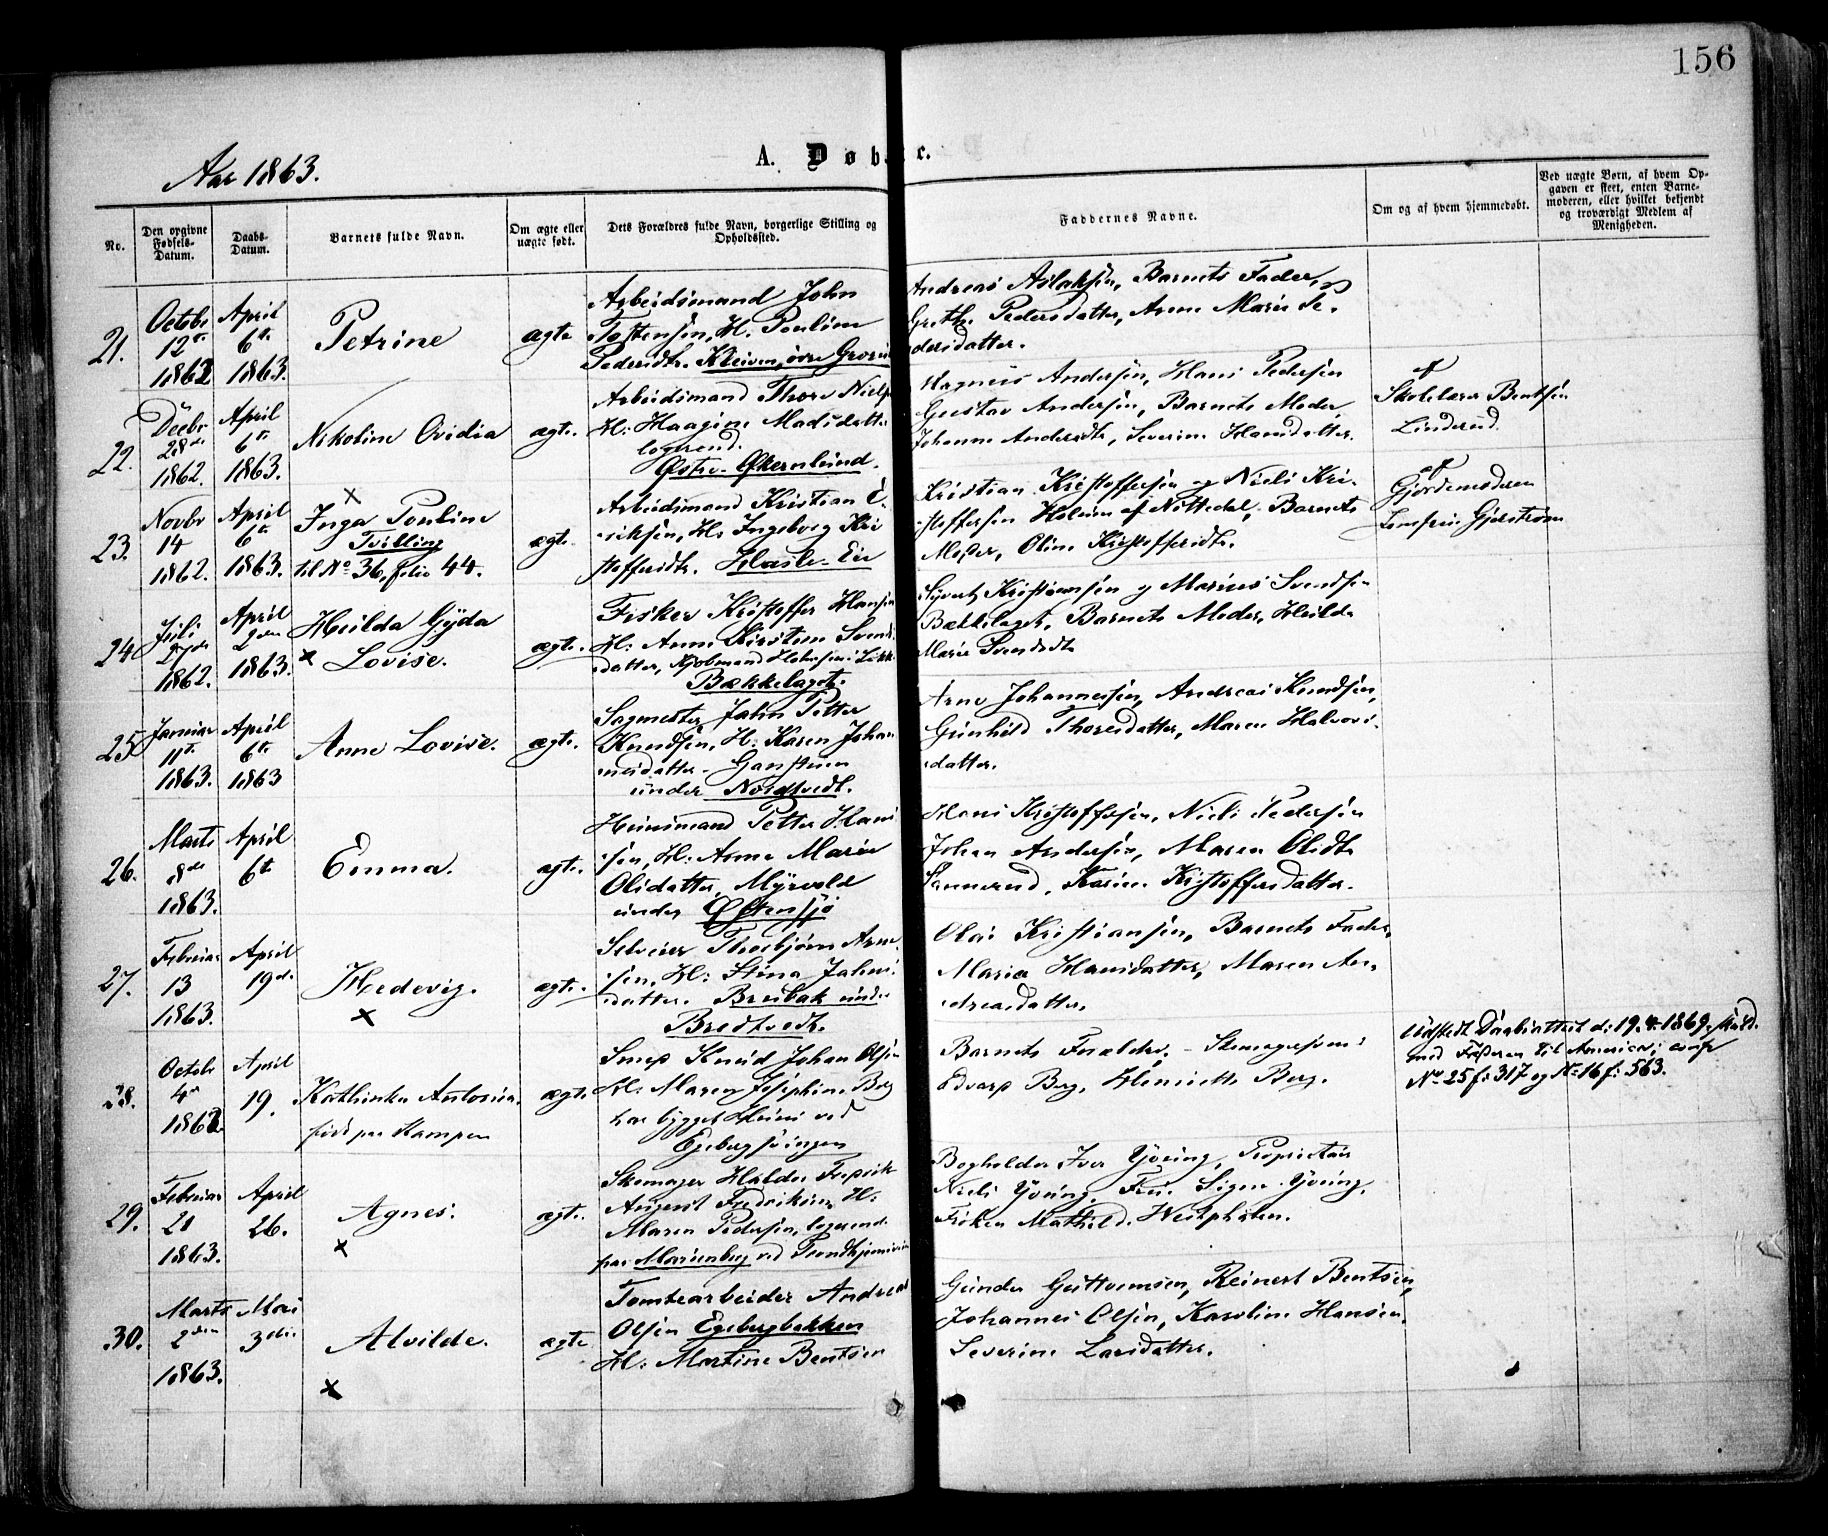 156
Aar 1863.
A. Døbte.
No.
Den opgivne Fødsels-Datum.
Daabs-Datum.
Barnets fulde Navn.
Om ægte eller uægte født.
Dets Forældres fulde Navn, borgerlige Stilling og Opholdssted.
Faddernes Navne.
Om og af hvem hjemmedøbt.
Ved uægte Børn, af hvem Opgaven er skeet, enten Barnemoderen, eller hvilket bekjendt og troværdigt Medlem af Menigheden.
21.
Octobr
12te
1862
April
6te
1863.
Petrine
ægte
Arbeidsmand John
Tostensen, H. Pouline
Pedersdtr.
Andreas Aslaksen, Barnets Fader,
Grethe Pedersdatter, Anne Marie Pe-
dersdatter.
22.
Decbr
28de
1862.
April
6te
1863.
Nikoline Ovidia
ægte.
Arbeidsmand Thore Niels
H. Haagine Madsdatter
logerend.
Østre Økernlund.
Magnus Andersen, Hans Pedersen
Gustav Andersen, Barnets Moder,
Johanne Andersdtr, Severine Hansdatter.
af
Skolelærer Bentsen
Linderud.
23.
Novbr
14
1862.
April
6te
1863.
Inga Pouline
Tvilling
til No 36, folio 44.
ægte.
Arbeidsmand Kristian E-
riksen, H. Ingeborg Kri
stoffersdtr. Hasle-Eie
Kristian Kristoffersen og Niels Kri-
stoffersen Holmen af Nittedal, Barnets
Moder, Oline Kristoffersdtr.
af
Gjordemoderen
24.
Juli
1862.
April
2den
1863.
Hilda Gyda
Lovise.
ægte.
Fisker Kristoffer Hansen
H. Anne Kirstine Svends
datter,
Bækkelaget.
Syvert Kristiansen og Marius Svendsen
Bækkelaget, Barnets Moder, Hilda
Marie Svendsdtr
25
Januar
11te
1863.
April
6te
1863
Anne Lovise.
ægte.
Sagmester John Petter
Knudsen, H. Karen Johan
nesdatter
under Nordtvedt.
Arne Johannessen, Andreas Knudsen,
Gunhild Thoresdatter, Maren Halvors-
datter.
26.
Marts
8de
1863.
April
6te
Emma.
ægte.
Huusmand Petter Hans
sen, H: Anne Marie
Olsdatter, Myrvold
under Østensjø
Hans Kristoffersen, Niels Pedersen
Johan Andersen, Maren Olsdtr
Karine Kristoffersdatter.
27.
Februar
13
1863.
April
19de
Hedevig.
ægte.
Selveier Thorbjørn Arne
sen, H: Stina Johns
datter. Breibak under
Bredtvedt.
Olai Kristiansen, Barnets Fader,
Maria Hansdatter, Maren An-
dreasdatter.
28.
Octobr
4de
1862
April
19.
Kathinka Antonia.
født paa Kampen
ægte
Smed Knud Johan Olsen
H. Maren Josephine Berg
har bygget Huus ved
Egebergsvingen
Barnets Forældre,
Edvard Berg, Henriette Berg.
Udstedt Daabsattest d: 19.4.1869, skuld.
med Faderen til America; conf
No 25 f: 317 og No 16 f: 563.
29.
Februar
21
1863.
April
26.
Agnes.
ægte.
Skomager Halder Fredrik
August Fredriksen, H.
Maren Pedersen, logerend
paa Marienberg ved Trondhjemsveien
Bogholder Iver Young, Proprietær
Niels Young, Fru Signe Young,
Frøken Mathilde Westphalen.
30.
Marts
2den
1863.
Mai
3die
Alvilde.
ægte
Tomtearbeider Andreas
Olsen Egebergbakken
H. Martine Bentsen
Gunder Guttormsen, Reinert Bentsen,
Johannes Olsen, Karoline Hansen,
Severine Larsdatter.